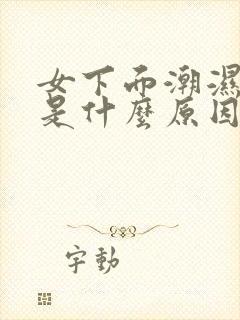 女下而潮濕
是什麼原因
字動